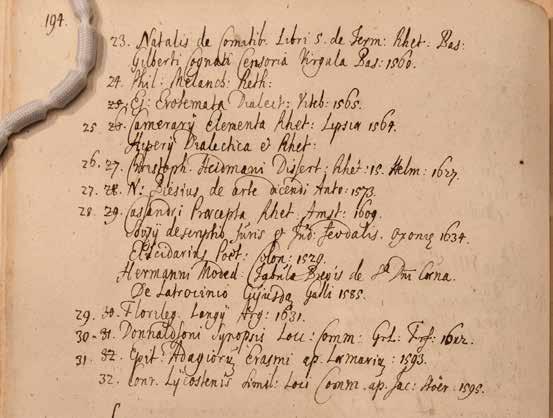 194.
23. Natalis de Comitib. Libri 5. de Term: Rhet: Bas:
Gilberti Cognati Censoria Virgula Bas: 1560.
24. Phil: Melanch: Reth:
25. Ej: Erotemata Dialect: Viteb: 1565.
25 26. Camerarÿ Elementa Rhet: Lipsiæ 1564.
Hiperÿ Dialectica et Rhet:
26. 27. Christoph. Heidmani Dissert: Rhet: 15. Helm: 1627.
27. 28. N: Elesius de arte dicendi Antv: 1573.
28. 29. Cassandri Præcepta Rhet. Amst: 1609.
descriptio Juris et Jud: Feudalis. Oxoniæ 1634.
Elucidarius Poët: Colon: 1529.
Hermanni Tabula Regis de Cœna.
De Latrocinio Cujusdā Galli 1585.
29. 30. Florileg. Langÿ Arg: 1631.
30. 31. Donhaldsoni Synopsis Loc: Comm: Frf: 1612.
31. 32. Epit: Adagiorū Erasmi ap. 1593.
32. Conr. Lÿcostenis Simil: Loci Comm. ap. Jac: Stöer. 1595.